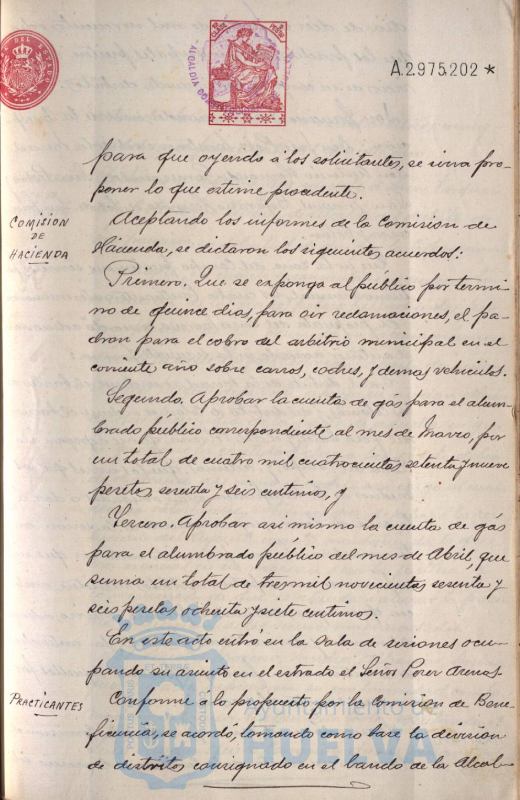 A.2.975.202 *
para que oyendo á los solicitantes, se sirva pro-
poner lo que estime procedente.
COMISION
DE
HACIENDA
Aceptando los informes de la Comision de
Hacienda, se dictaron los siguientes acuerdos:
Primero. Que se exponga al público por termi-
no de quince dias, para oir reclamaciones, el pa-
dron para el cobro del arbitrio municipal en el
corriente año sobre carros, coches, y demas vehiculos.
Segundo. Aprobar la cuenta de gás para el alum-
brado público correspondiente al mes de Marzo, por
un total de cuatro mil cuatrocientas setenta y nueve
pesetas sesenta y seis centimos, y
Tercero. Aprobar asi mismo la cuenta de gás
para el alumbrado público del mes de Abril, que
suma un total de tres mil novecientas sesenta y
seis pesetas ochenta y siete centimos.
En este acto entró en la sala de sesiones ocu-
pando su asiento en el estrado el Señor Perez Arenas.
PRACTICANTES
Conforme a lo propuesto por la Comision de Bene-
ficencia, se acordó, tomando como base la division
de distritos consignado en el bando de la Alcal-
Ayuntamiento de
HUELVA